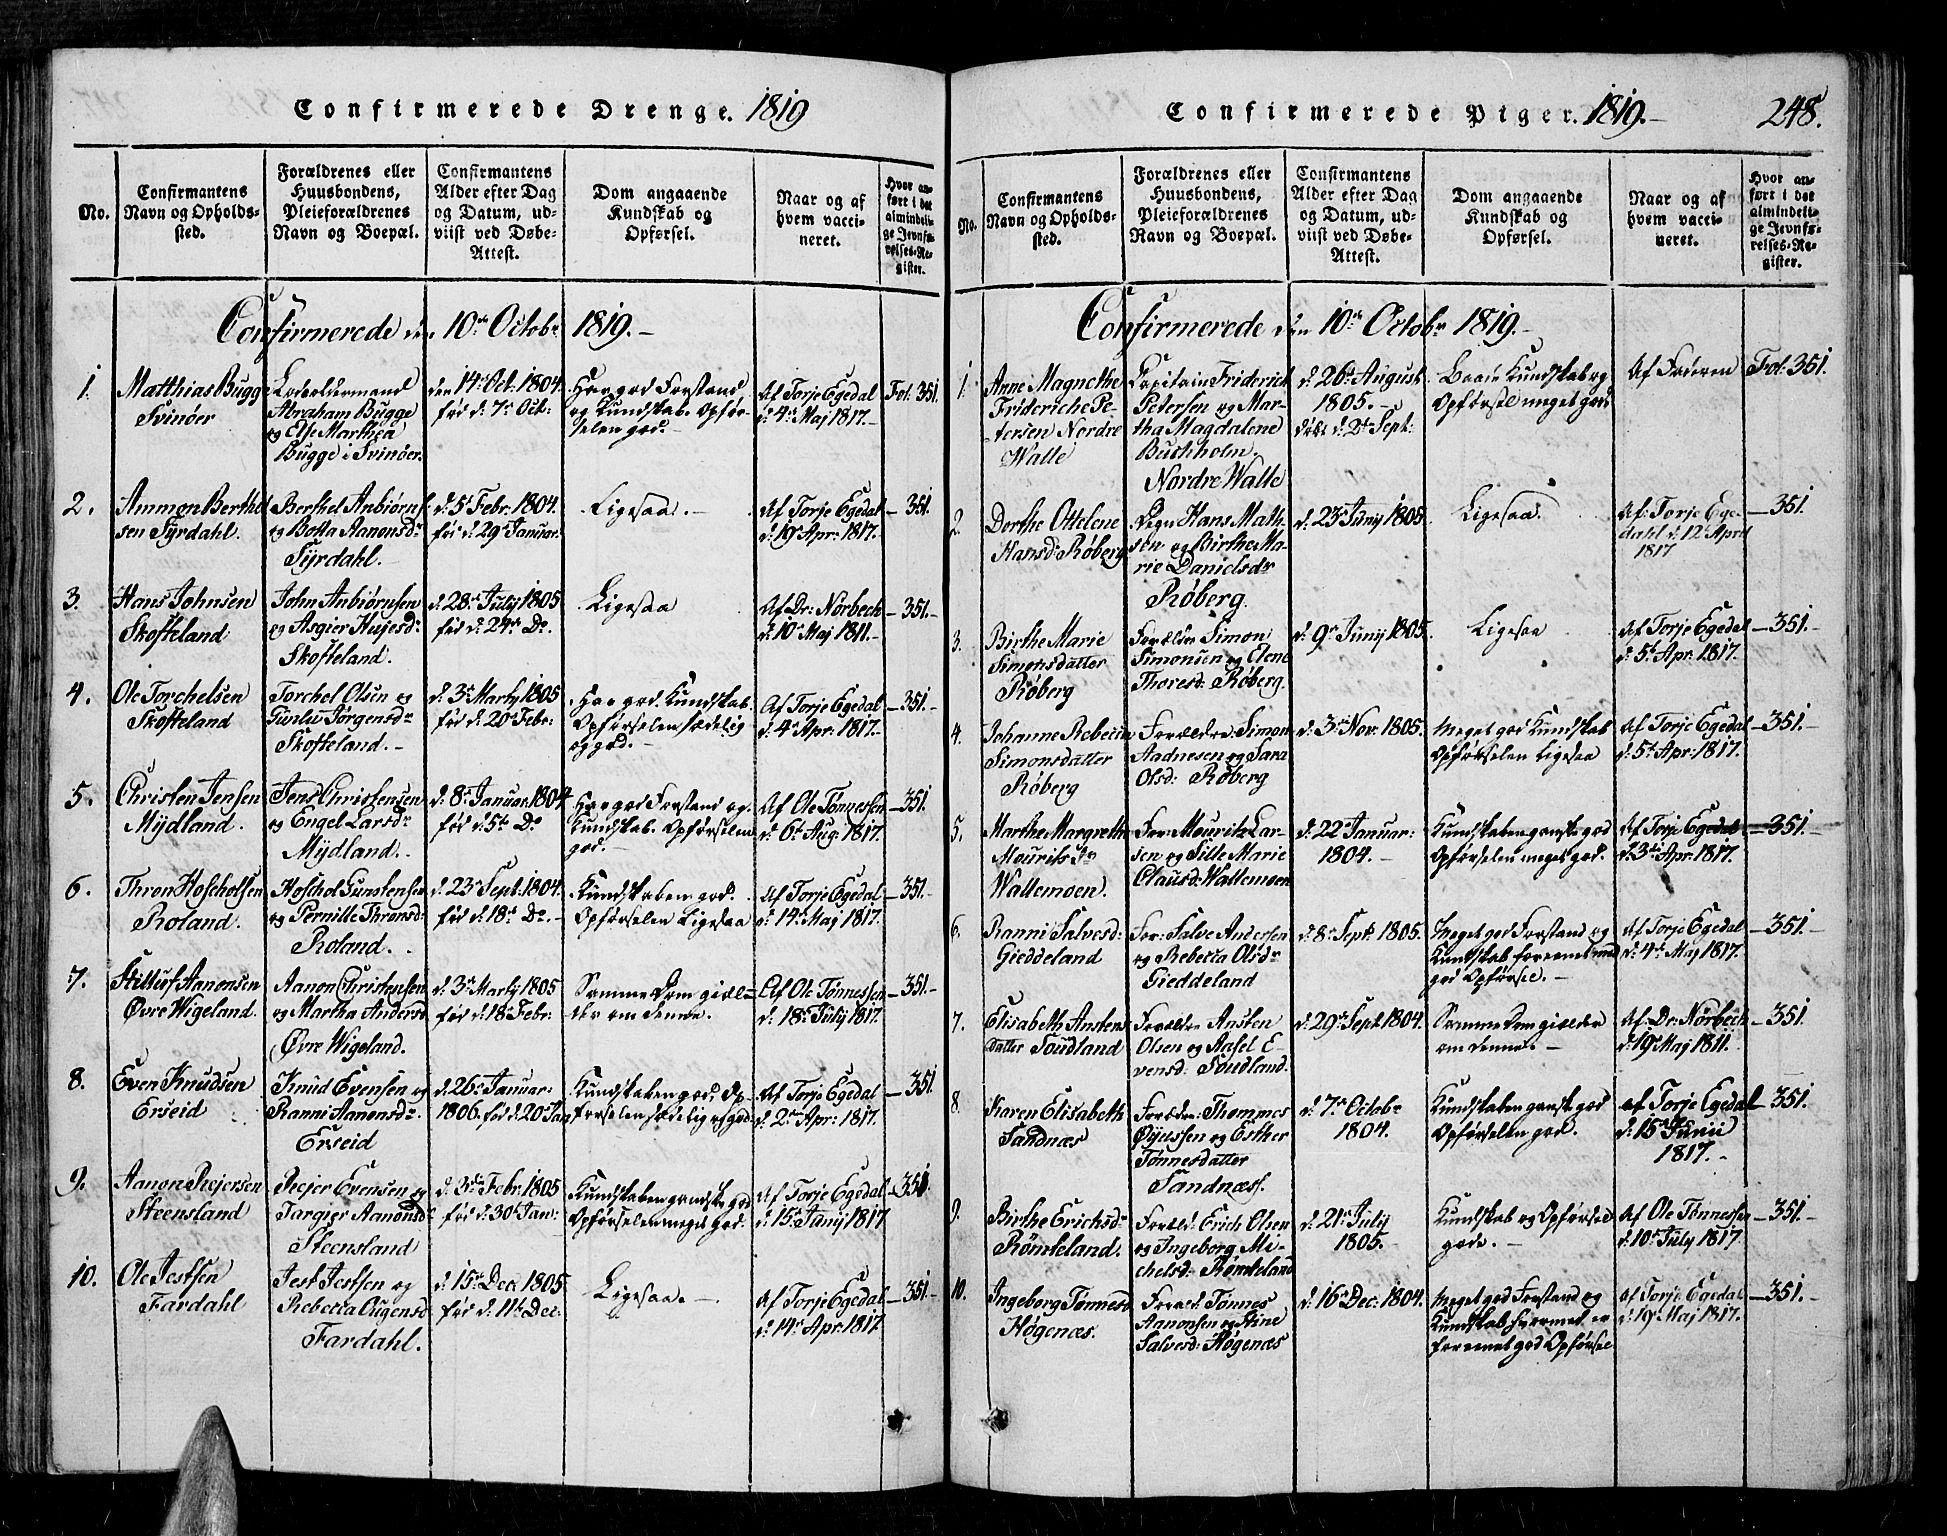 Confirmerede Drenge. 1819
No.
Confirmantens
Navn og Opholds-
sted.
Forældrenes eller
Huusbondens,
Pleieforældrenes
Navn og Boepæl.
Confirmantens
Alder efter Dag
og Datum, ud-
viist ved Døbe-
Attest.
Dom angaaende
Kundskab og
Opførsel.
Naar og af
hvem vacci-
neret.
Hvor an-
ført i det
almindeli-
ge Jevnfø-
relses-Re-
gister.
Confirmerede den 10de Octobr 1819.-
1.
Matthias Bugge
Svinøer
Lodsoldermand
Abraham Bugge
og Else Marthea
Bugge i Svinøer.
den 14. Oct. 1804
fød d. 7de Oct:
Har god Forstand
og Kundskab. Opfør-
selen god.-
Af Torje Egedal
d. 4de Maj 1817.-
Fol. 351.
2.
Ammon Berthel
sen Tyrdahl.
Berthel Anbiørns
og Botta Aanonsdr
Tyrdahl.-
d. 5te Febr. 1804.
fød d. 29de Januar.
Ligesaa.-
Af Torje Egedal
d. 19de Apr. 1817.
-351.
3.
Hans Johnsen
Skofteland
John Anbiørnsen
og Asgier Hujesdr
Skofteland.
d. 28de July 1805
fød d. 24de Do.
Ligesaa
Af Dr. Norbech
d. 10de Maj 1811.-
-351.-
4.
Ole Torchelsen
Skofteland
Torchel Olsen og
Gunlu Jørgensdr
Skofteland.-
d. 3de Marty 1805
fød d. 20de Febr:
Har god Kundskab.
Opførselen sædelig
og god.-
Af Torje Egedal
d. 4de Apr: 1817.-
-351.-
5.
Christen Jensen
Mydland.
Jens Christensen
og Engel Larsdr
Mydland.-
d. 8de Januar. 1804
fød d. 5te Do
Har god Forstand og
Kundskab. Opførselen
god.-
Af Ole Tønnessen
d. 6te Aug. 1817.
-351.
6.
Thron Hoscholsen
Roland.
Hoschol Gunstensen
og Pernille Thronsd:
Roland.
d. 23de Sept. 1804.
fød d. 18de Do.-
Kundskaben god.
Opførselen Ligesaa
Af Torje Egedal
d. 14de Maj 1817.
-351.-
7.
Aanonsen
Øvre Wigeland.
Aanon Christensen
og Martha Andersd
Øvre Wigeland.
d. 3de Marty 1805
fød d. 18de Febr:
Samme Dom giæl-
der om denne.
Af Ole Tønnessen
d. 18de July 1817.
-351.-
8.
Even Knudsen
Erseid
Knud Evensen og
Ranni Aanonsdr.
Erseid
d. 26de Januar:
1806. fød d. 20de Jan
Kundskaben god. Op-
førselen sædelig og god.
Af Torje Egedal
d. 2den Apr: 1817.
-351
9.
Aanon Rejersen
Steensland
Rejer Evensen og
Targier Aanonsdr
Steensland
d. 3de Febr. 1805
fød d. 30te Jan:
Kundskaben gandske god
Opførselen meget god.
Af Torje Egedal
d. 15de Junij 1817
-351
10.
Ole Jestsen
Fardahl
Jest Jestsen og
Rebecca Augensd
Fardahl.
d. 15de Dec. 1805
fød d. 11te Dec:
Ligesaa.-
Af Torje Egedal
d. 14de Apr. 1817
-351.-
Confirmerede Piger. 1819.-
248.
No.
Confirmantens
Navn og Opholds-
sted.
Forældrenes eller
Huusbondens,
Pleieforældrenes
Navn og Boepæl.
Confirmantens
Alder efter Dag
og Datum, ud-
viist ved Døbe-
Attest.
Dom angaaende
Kundskab og
Opførsel.
Naar og af
hvem vacci-
neret.
Hvor an-
ført i det
almindeli-
ge Jevnfø-
relses-Re-
gister.
Confirmerede den 10de Octobr 1819.-
1.
Anne Magnethe
Frideriche Pe-
tersen Nordre
Walle
Capitain Friderich
Petersen og Mar-
tha Magdalene
Buchholm.
Nordre Walle
d. 26de August
1805.-
døbt d. 2de Sept:
Baade Kundskab og
Opførsel meget god
Af Faderen
Fol. 351.
2.
Dorthe Ottelene
Hansd. Røberg
Degn Hans Math-
sen og Birthe Ma-
rie Danielsdr
Røberg.
d. 23de Junij 1805.
Ligesaa.
Af Torje Ege-
dahl d. 12te April
1817
-351.
3.
Birthe Marie
Simonsdatter
Røberg
Forældre Simon
Simonsen og Elene
Thoresd: Røberg.
d. 9de Junij 1805.
Ligesaa
Af Torje Egedal
d. 5te Apr. 1817.
-351.-
4.
Johanne Rebecca
Simonsdatter
Røberg
Forældre: Simon
Aadnesen og Sara
Olsd: Røberg
d. 3de Nov. 1805.
Meget god Kundskab
Opførselen Ligesaa
Af Torje Egedal
d. 5te Apr. 1817.
-351.-
5.
Marthe Margrethe
Mourits Dr
Wallemoen.
For: Mouritz Lar-
sen og Sille Marie
Clausd: Wallemoen
d. 22de Januar:
1804.-
Kundskaben ganske god
Opførselen meget god.
Af Torje Egedal
d. 3de Apr. 1817.
-351.-
6.
Ranni Salvesd:
Gieddeland
For: Salve Andersen
og Rebecca Olsdr
Gieddeland
d. 8de Sept. 1805.
Meget god Forstand og
Kundskab foreenet med
god Opførsel.-
Af Torje Egedal
d. 4de Maj 1817.
-351.-
7.
Elisabeth Anstens
datter Soudland
Forældre Ansten
Olsen og Aasel E-
vensd: Soudland.
d. 29de Sept 1804.
Samme Dom giælder
om denne.-
Af Dr: Norbech
d. 19de Maj 1811.
-351.
8.
Karen Elisabeth
Sandnæs
Forældre: Thommes
Øyussen og Esther
Tønnesdatter
Sandnæs.
d. 7de Octobr
1804.
Kundskaben ganske god
Opførselen god.
af Torje Egedal
d. 15de Junii
1817.-
-351.
9.
Birthe Erichsdr
Rømteland.
Foræld: Erich Olsen
og Ingeborg Mi-
chelsd: Rømteland
d. 21de July
1805.
Kundskab og Opførsel
gode.-
Af Ole Tønnessen
d. 10de July 1817.
-351.-
10.
Ingeborg Tønnesd
Høgenæs.
Foræld: Tønnes
Aanonsen og Stine
Salvesd: Høgenæs
d. 16de Dec. 1804.
Meget god Forstand og
Kundskab hvormed er
foreenet god Opførsel
Af Torje Egedal
d. 19de Maj 1817.
-351.-